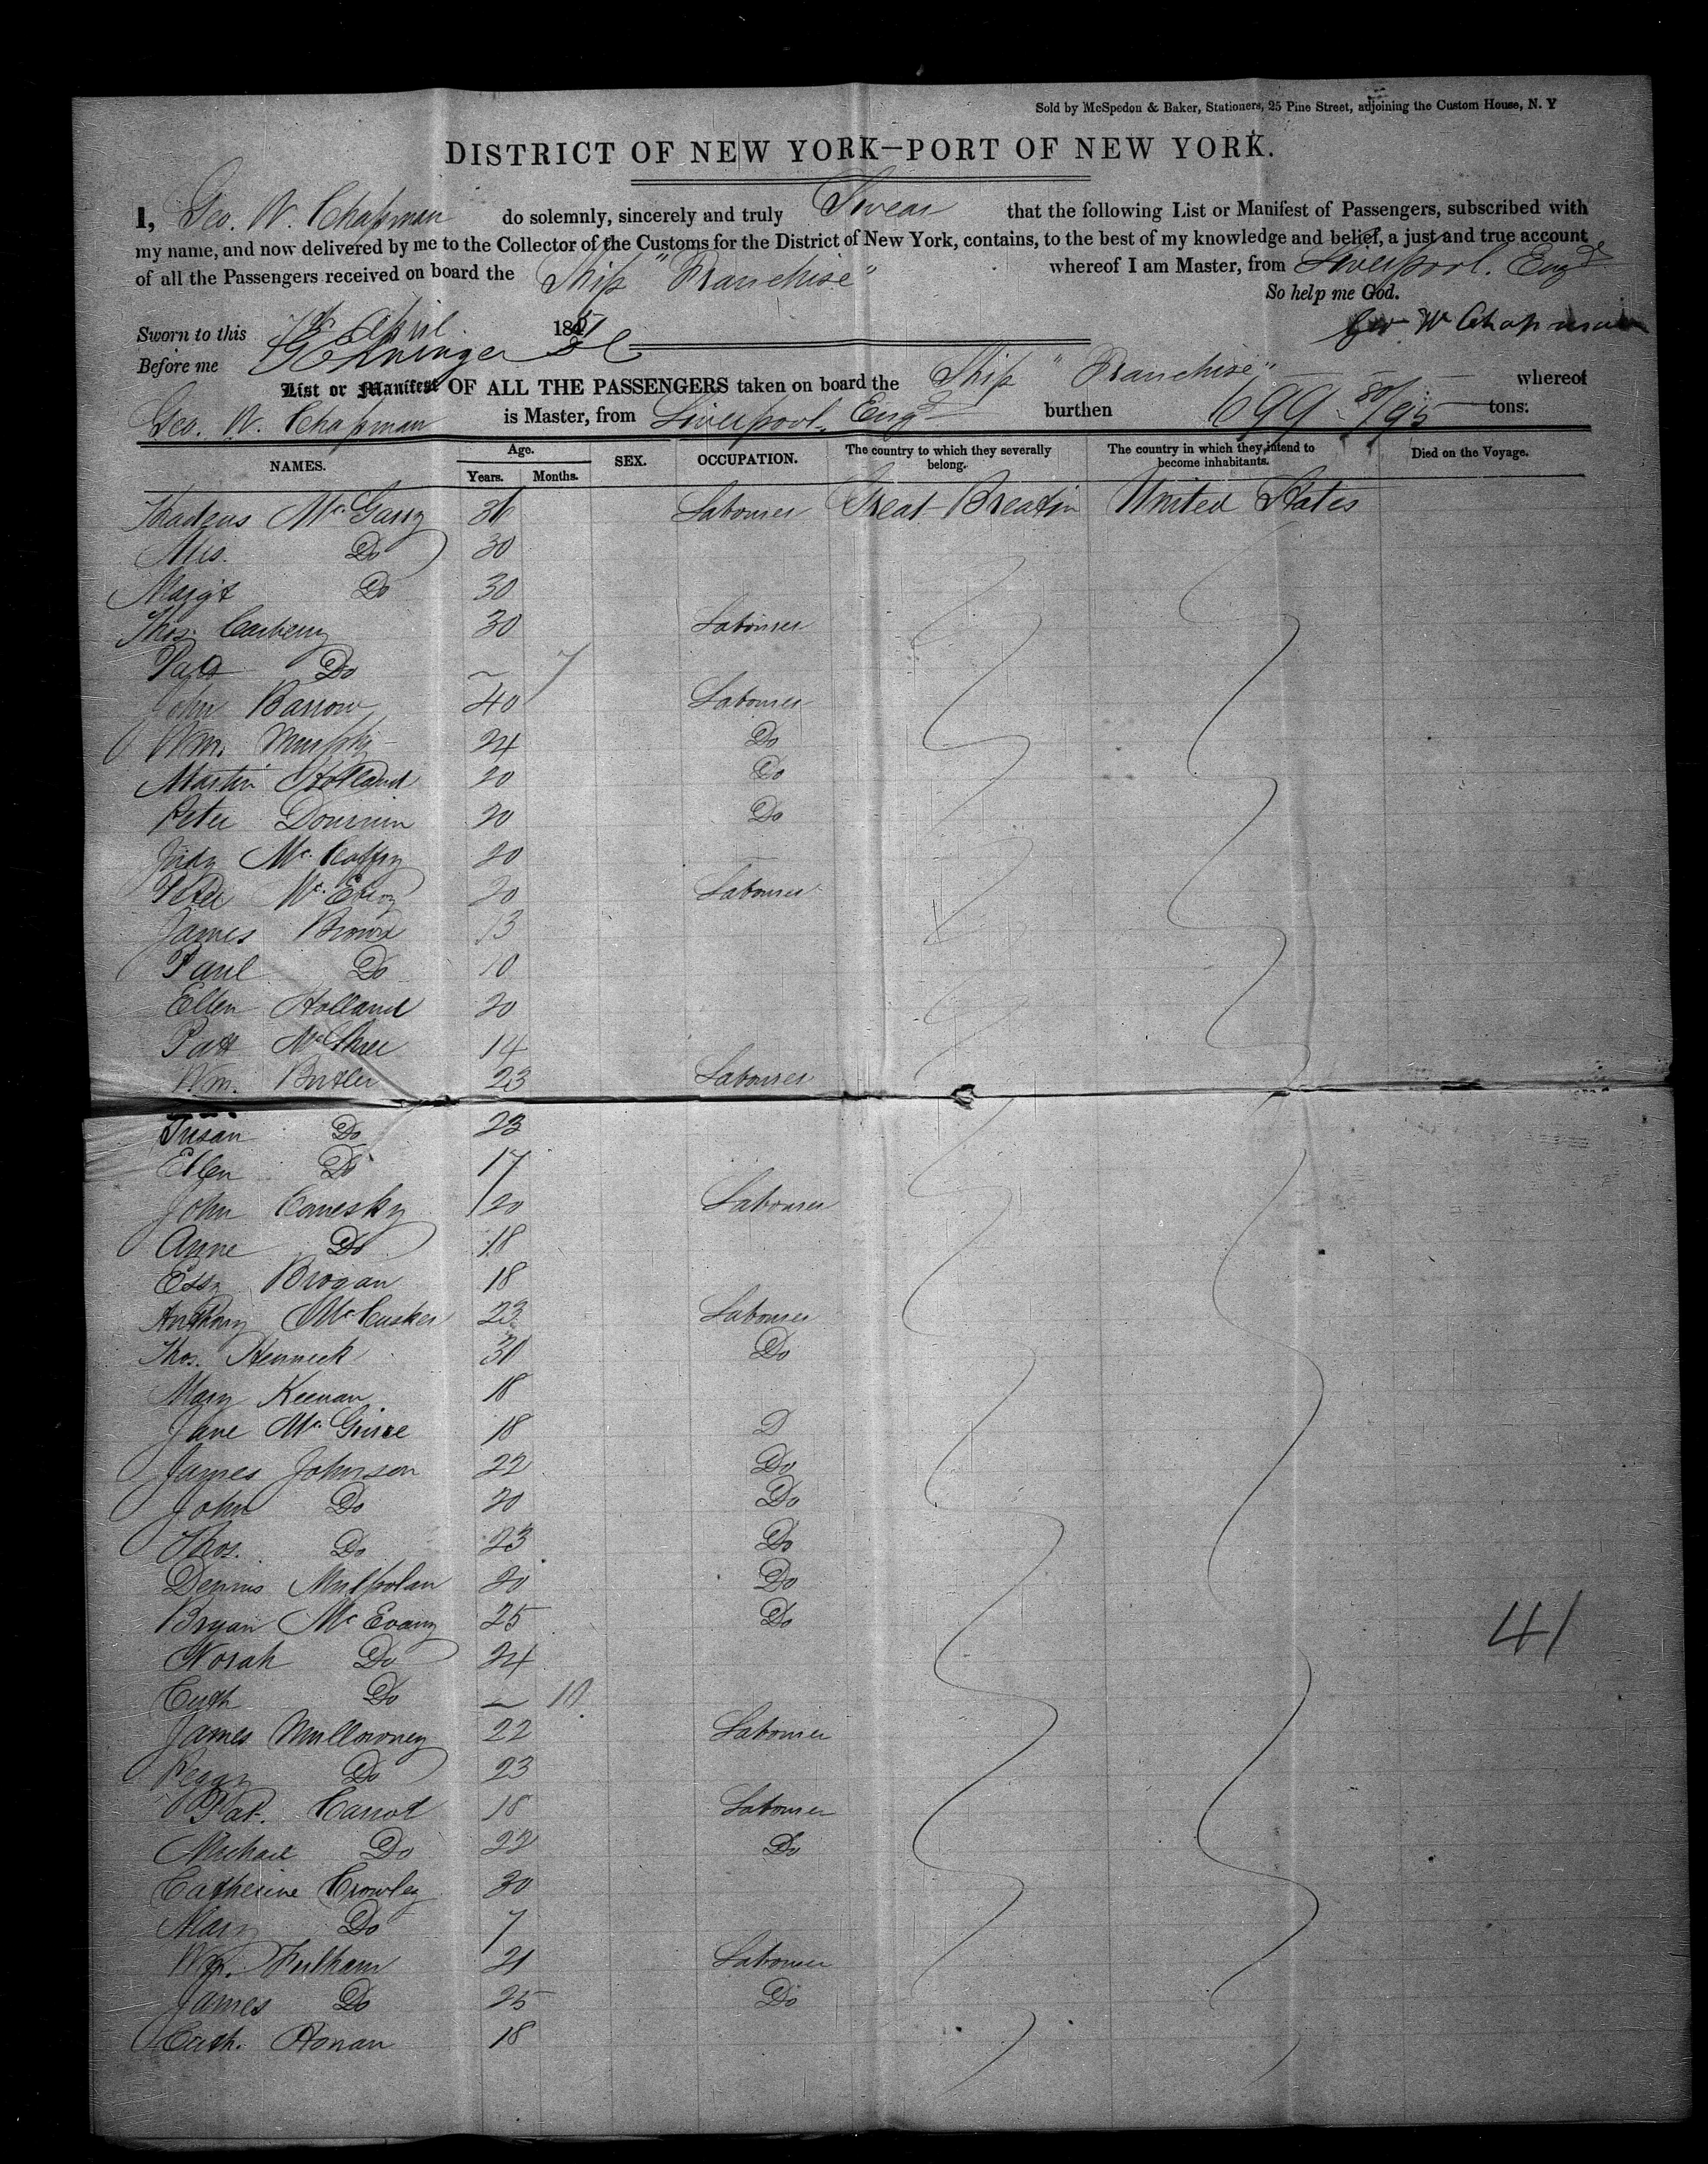 Sold by McSpedon & Baker, Stationers, 25 Pine Street, adjoining the Custom House, N. Y
DISTRICT OF NEW YORK—PORT OF NEW YORK.
I, Geo. W. Chapman do solemnly, sincerely and truly Swear that the following List or Manifest of Passengers, subscribed with
my name, and now delivered by me to the Collector of the Customs for the District of New York, contains, to the best of my knowledge and belief, a just and true account
of all the Passengers received on board the Ship "Franchise" whereof I am Master, from Liverpool. Engd
So help me God.
Sworn to this 7th April 1851
Geo W Chapman
Before me
List or Manifest OF ALL THE PASSENGERS taken on board the Ship "Franchise" whereof
Geo. W. Chapman is Master, from Liverpool. Engd burthen 699 80/95 tons.
NAMES. Age. Years. Months. SEX. OCCUPATION. The country to which they severally belong. The country in which they intend to become inhabitants. Died on the Voyage.
Thadeus Mc Garry 31 Labourer Great Breatin United States
Mrs. Do 30
Margt Do 30
Thos. Carberry 30 Labourer
Patt Do — 7
John Barrow 40 Labourer
Wm. Murphy 24 Do
Martin Holland 20 Do
Peter 20 Do
Judy Mc Caffry 20
Peter Mc Elroy 20 Labourer
James Brown 13
Paul Do 10
Ellen Holland 20
Patt 14
Wm. Butler 23 Labourer
Susan Do 23
Ellen Do 17
John 20 Labourer
Anne Do 18
Essy Brogan 18
Anthony Mc Cusker 23 Labourer
Thos. Henneck 31 Do
Mary Keenan 18
Jane Mc 18 D
James Johnson 22 Do
John Do 20 Do
Thos. Do 23 Do
Dennis 20 Do
Bryan Mc Evany 25 Do
Norah Do 24
Cath Do — 10
James Mullowney 22 Labourer
Peggy Do 23
Pat. Carrot 18 Labourer
Michael Do 22 Do
Catherine Crowley 30
Mary Do 7
Wm. Fulham 21 Labourer
James Do 25 Do
Cath. Honan 18
41